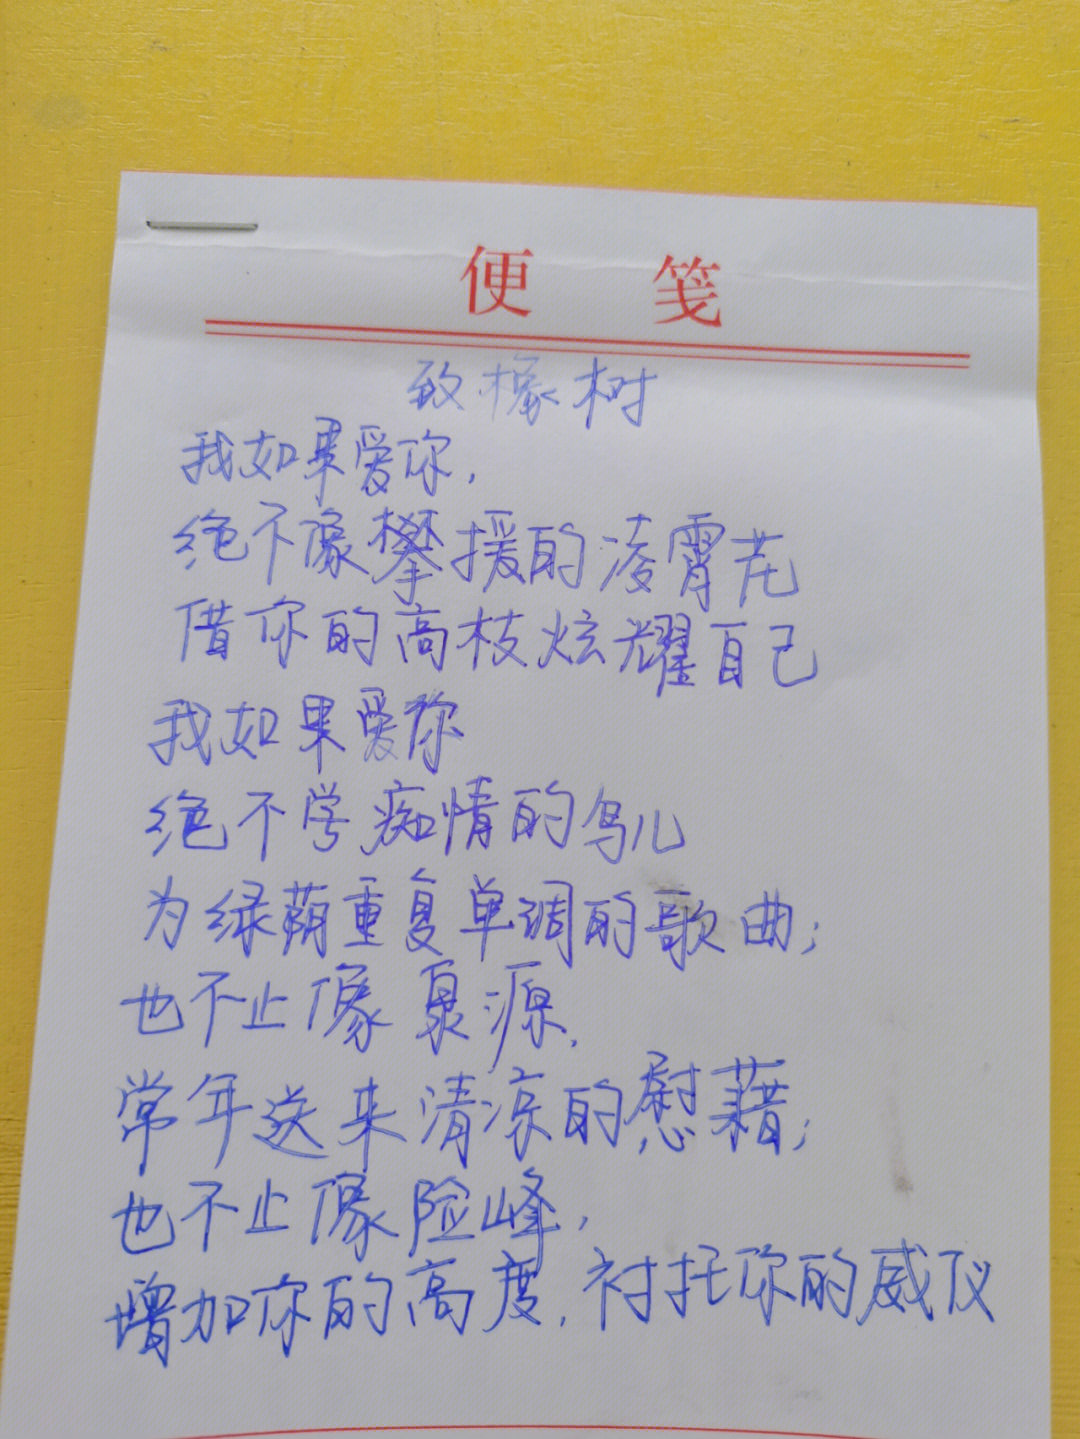 便笺
致橡树
我如果爱你，
绝不像攀援的凌霄花
借你的高枝炫耀自己
我如果爱你
绝不学痴情的鸟儿
为绿荫重复单调的歌曲；
也不止像泉源，
常年送来清凉的慰藉；
也不止像险峰，
增加你的高度，衬托你的威仪